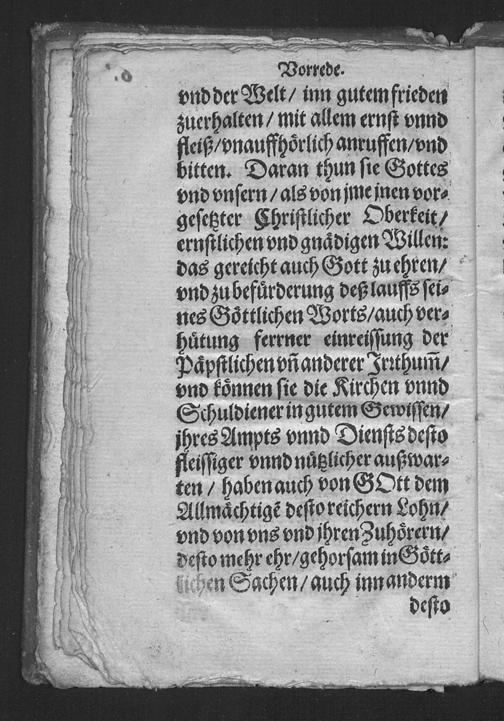 Vorrede.
vnd der Welt/ inn gutem frieden
zuerhalten/ mit allem ernst vnnd
fleiß/vnauffhörlich anruffen/vnd
bitten. Daran thun sie Gottes
vnd vnsern/ als von jme jnen vor-
gesetzter Christlicher Oberkeit/
ernstlichen vnd gnädigen Willen:
das gereicht auch Gott zu ehren/
vnd zu befürderung deß lauffs sei-
nes Göttlichen Worts/auch ver-
hütung ferrner einreissung der
Päpstlichen vn̄ anderer Irꝛthum̄/
vnd können sie die Kirchen vnnd
Schuldiener in gutem Gewissen/
jhres Ampts vnnd Diensts desto
fleissiger vnnd nützlicher außwar-
ten/ haben auch von GOtt dem
Allmächtigē desto reichern Lohn/
vnd von vns vnd jhren Zuhörern/
desto mehr ehr/gehorsam in Gött-
lichen Sachen/ auch inn anderm
desto